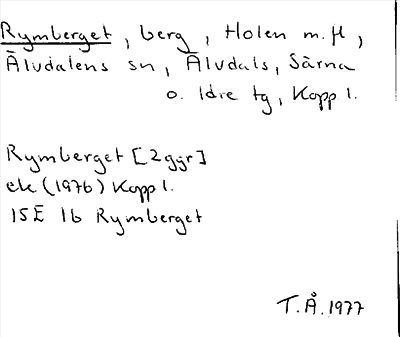 Rymberget, berg, Holen m.fl,
Älvdalens sn, Älvdals, Särna
o. Idre tg, Kopp l.
Rymberget [2ggr]
ek (1976) Kopp l.
15E 1b Rymberget
T.Å.1977